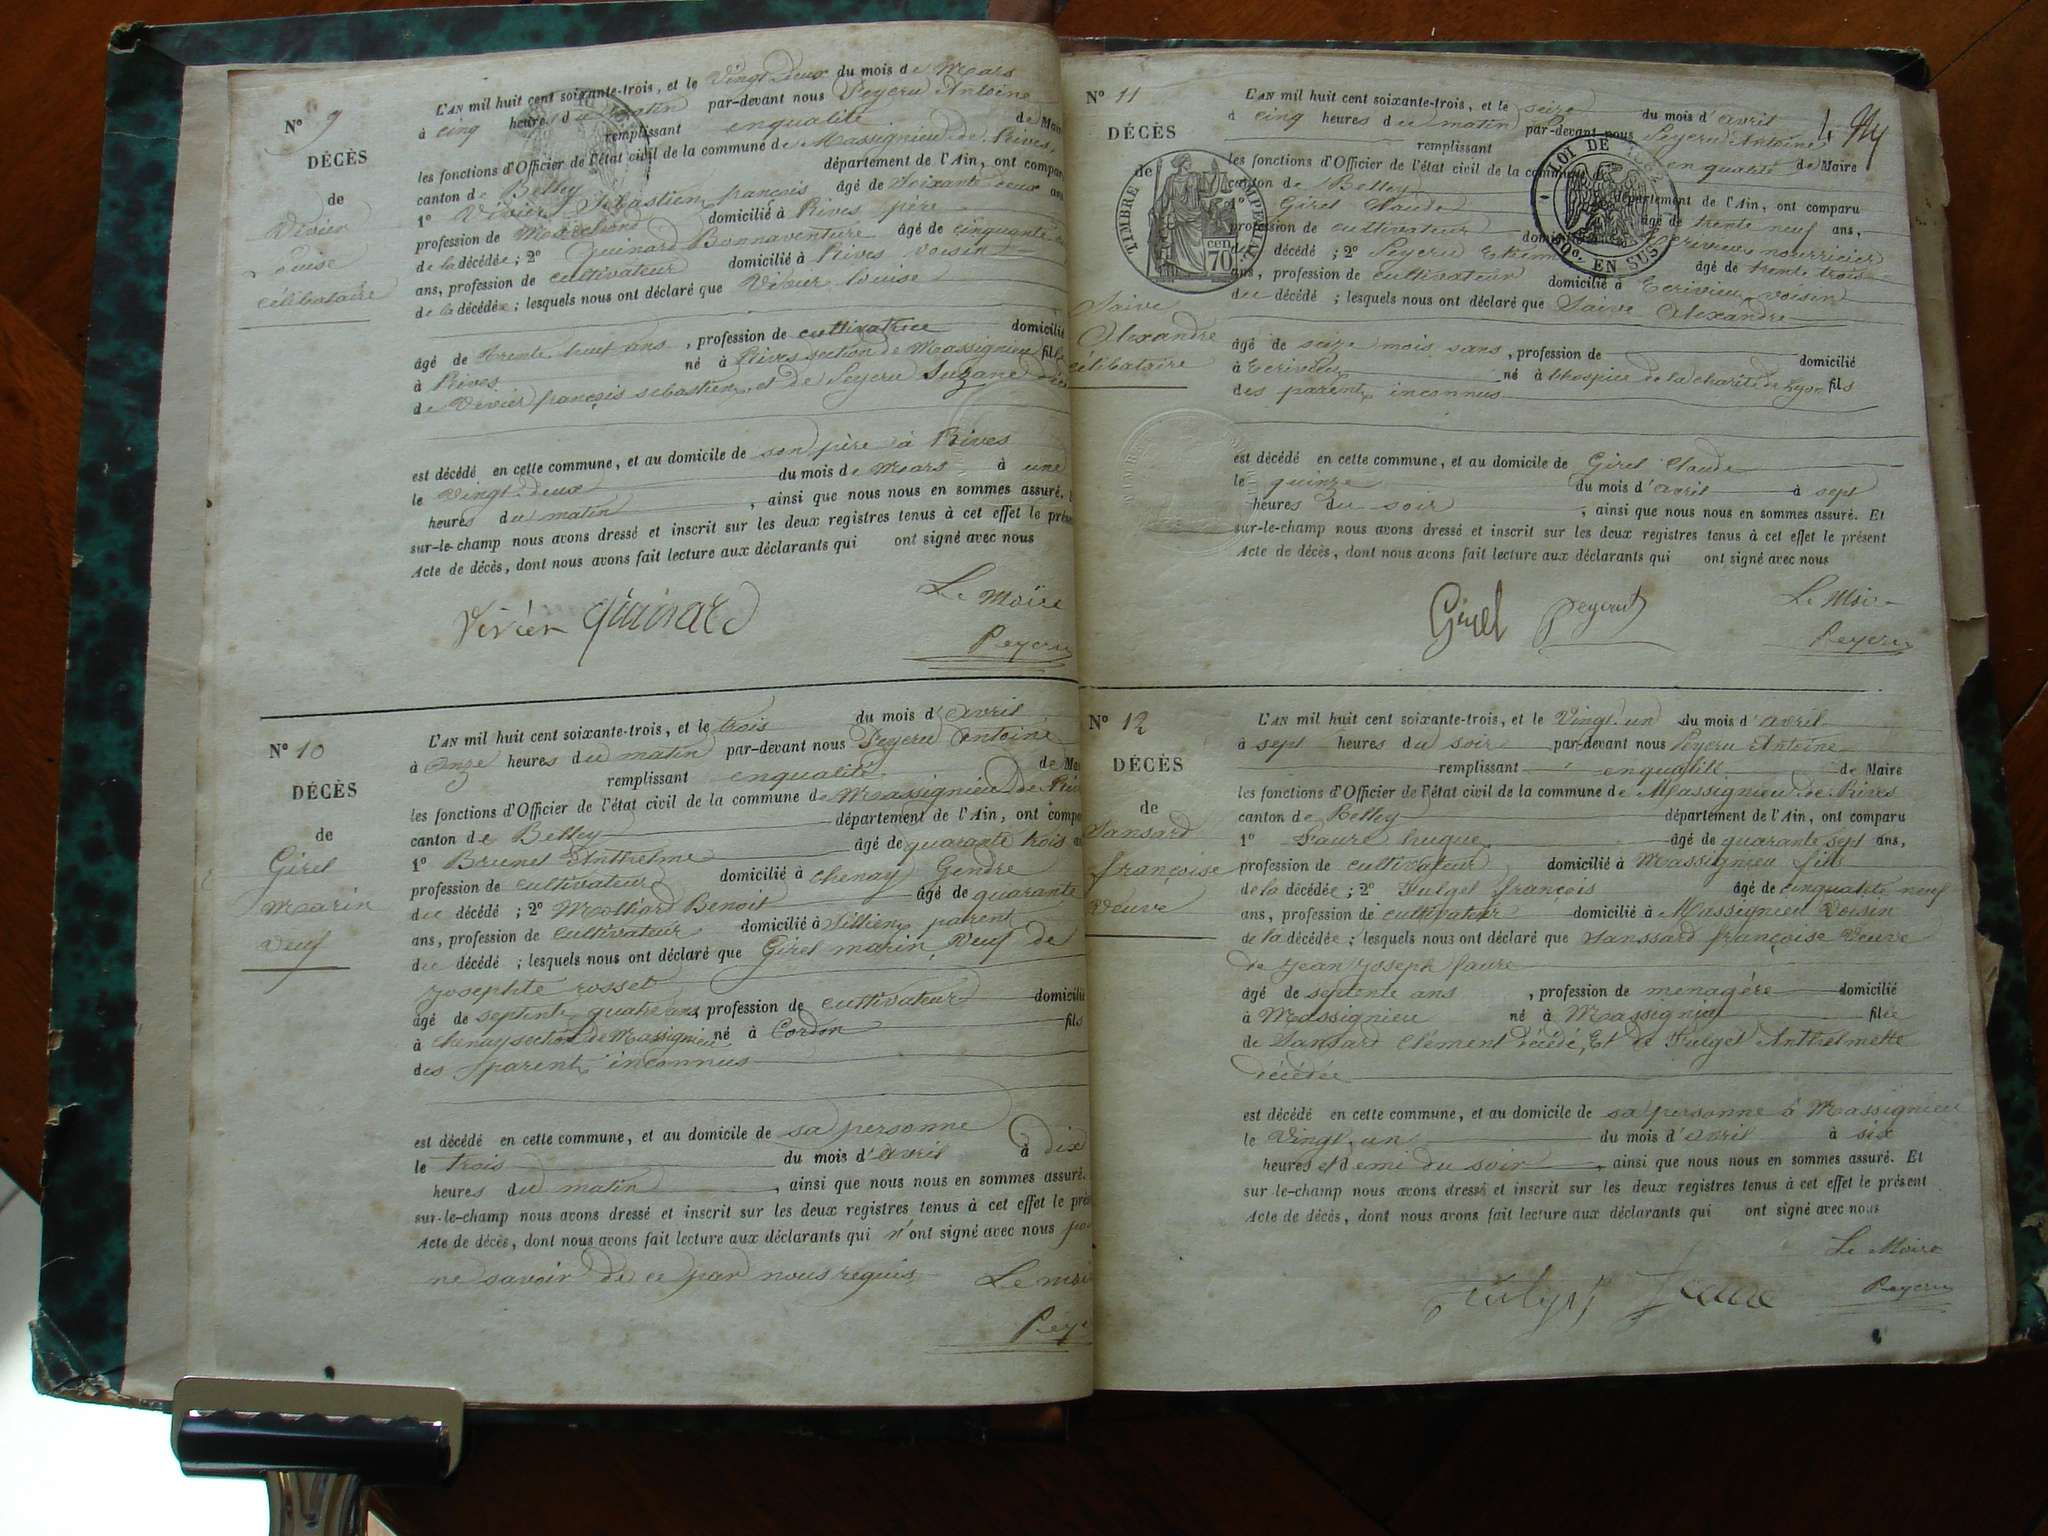 N° 9
DÉCÈS
de
Vivier
Louise
célibataire
L'AN mil huit cent soixante-trois, et le Vingt deux du mois de Mars
à cinq heures du matin par-devant nous Peycru Antoine
remplissant enqualité de Mai
les fonctions d'Officier de l'état civil de la commune de Massignieu de Rives,
canton de Belley département de l'Ain, ont compar
1° Vivier Sébastien françois âgé de Soixante deux ans
profession de Marchand domicilié à Rives père
de la décédée ; 2° Quinard Bonnaventure âgé de cinquante
ans, profession de cultivateur domicilié à Rives voisin
de la décédée ; lesquels nous ont déclaré que Vivier Louise
âgé de trente huit ans , profession de cultivatrice domicilié
à Rives né à Rives section de Massignieu fil
de Vivier françois sebastien et de Peycru Suzane
est décédé en cette commune, et au domicile de son père à Rives
le Vingt deux du mois de Mars à une
heures du matin , ainsi que nous nous en sommes assuré.
sur-le-champ nous avons dressé et inscrit sur les deux registres tenus à cet effet le prése
Acte de décès, dont nous avons fait lecture aux déclarants qui ont signé avec nous
Le Maire
Vivier Quinard
Peycru
N° 10
DÉCÈS
de
Girel
Marin
Veuf
L'AN mil huit cent soixante-trois, et le trois du mois d'avril
à Onze heures du matin par-devant nous Peycru Antoine
remplissant enqualité de Mai
les fonctions d'Officier de l'état civil de la commune de Massignieu de Riv
canton de Belley département de l'Ain, ont compa
1° Brunet Anthelme âgé de quarante trois a
profession de cultivateur domicilié à Chenay Gendre
du décédé ; 2° Molliard Benoit âgé de quarante
ans, profession de cultivateur domicilié à Sillien parent
du décédé ; lesquels nous ont déclaré que Girel marin, Veuf de
Josephte rosset
âgé de septente quatre ans, profession de cultivateur domicilié
à Chenay section de Massignieu né à Cordon fils
des parents inconnus
est décédé en cette commune, et au domicile de sa personne
le trois du mois d'avril à dix
heures du matin , ainsi que nous nous en sommes assuré.
sur-le-champ nous avons dressé et inscrit sur les deux registres tenus à cet effet le prés
Acte de décès, dont nous avons fait lecture aux déclarants qui n'ont signé avec nous pour
ne savoir de ce par nous requis
Le mai
Peyc
N° 11
DÉCÈS
de
TIMBRE IMPÉRIAL
70 cen
Saive
Alexandre
célibataire
LOI DE 1862
10es EN SUS
L'AN mil huit cent soixante-trois, et le seize du mois d'avril
à cinq heures du matin par-devant nous Peycru Antoine
remplissant en qualité de Maire
les fonctions d'Officier de l'état civil de la commune
canton de Belley département de l'Ain, ont comparu
1° Girel Claude âgé de trente neuf ans,
profession de cultivateur domicilié à Ecrivieu nourricier
du décédé ; 2° Peycru Etienne âgé de trente trois
ans, profession de cultivateur domicilié à Ecrivieu voisin
du décédé ; lesquels nous ont déclaré que Saive Alexandre
âgé de seize mois sans , profession de domicilié
à Ecrivieu né à l'hospice de la charité de Lyon fils
des parents inconnus
est décédé en cette commune, et au domicile de Girel Claude
le quinze du mois d'avril à sept
heures du soir , ainsi que nous nous en sommes assuré. Et
sur-le-champ nous avons dressé et inscrit sur les deux registres tenus à cet effet le présent
Acte de décès, dont nous avons fait lecture aux déclarants qui ont signé avec nous
Le Maire
Girel Peycrut
Peycru
N° 12
DÉCÈS
de
Sansard
françoise
Veuve
L'AN mil huit cent soixante-trois, et le Vingt un du mois d'avril
à sept heures du soir par-devant nous Peycru Antoine
remplissant enqualité de Maire
les fonctions d'Officier de l'état civil de la commune de Massignieu de Rives
canton de Belley département de l'Ain, ont comparu
1° Faure hugue âgé de quarante sept ans,
profession de cultivateur domicilié à Massignieu fils
de la décédée ; 2° Fulget françois âgé de cinquante neuf
ans, profession de cultivateur domicilié à Massignieu Voisin
de la décédée ; lesquels nous ont déclaré que Sanssard françoise Veuve
de Jean Joseph faure
âgé de septente ans , profession de menagére domicilié
à Massignieu né à Massignieu filée
de Sansard Clément décédé, Et de Fulget Anthelmette
décédée
est décédé en cette commune, et au domicile de sa personne à Massignieu
le Vingt un du mois d'avril à six
heures et demi du soir , ainsi que nous nous en sommes assuré. Et
sur le-champ nous avons dressé et inscrit sur les deux registres tenus à cet effet le présent
Acte de décès, dont nous avons fait lecture aux déclarants qui ont signé avec nous
Le Maire
Fulget Faure
Peycru